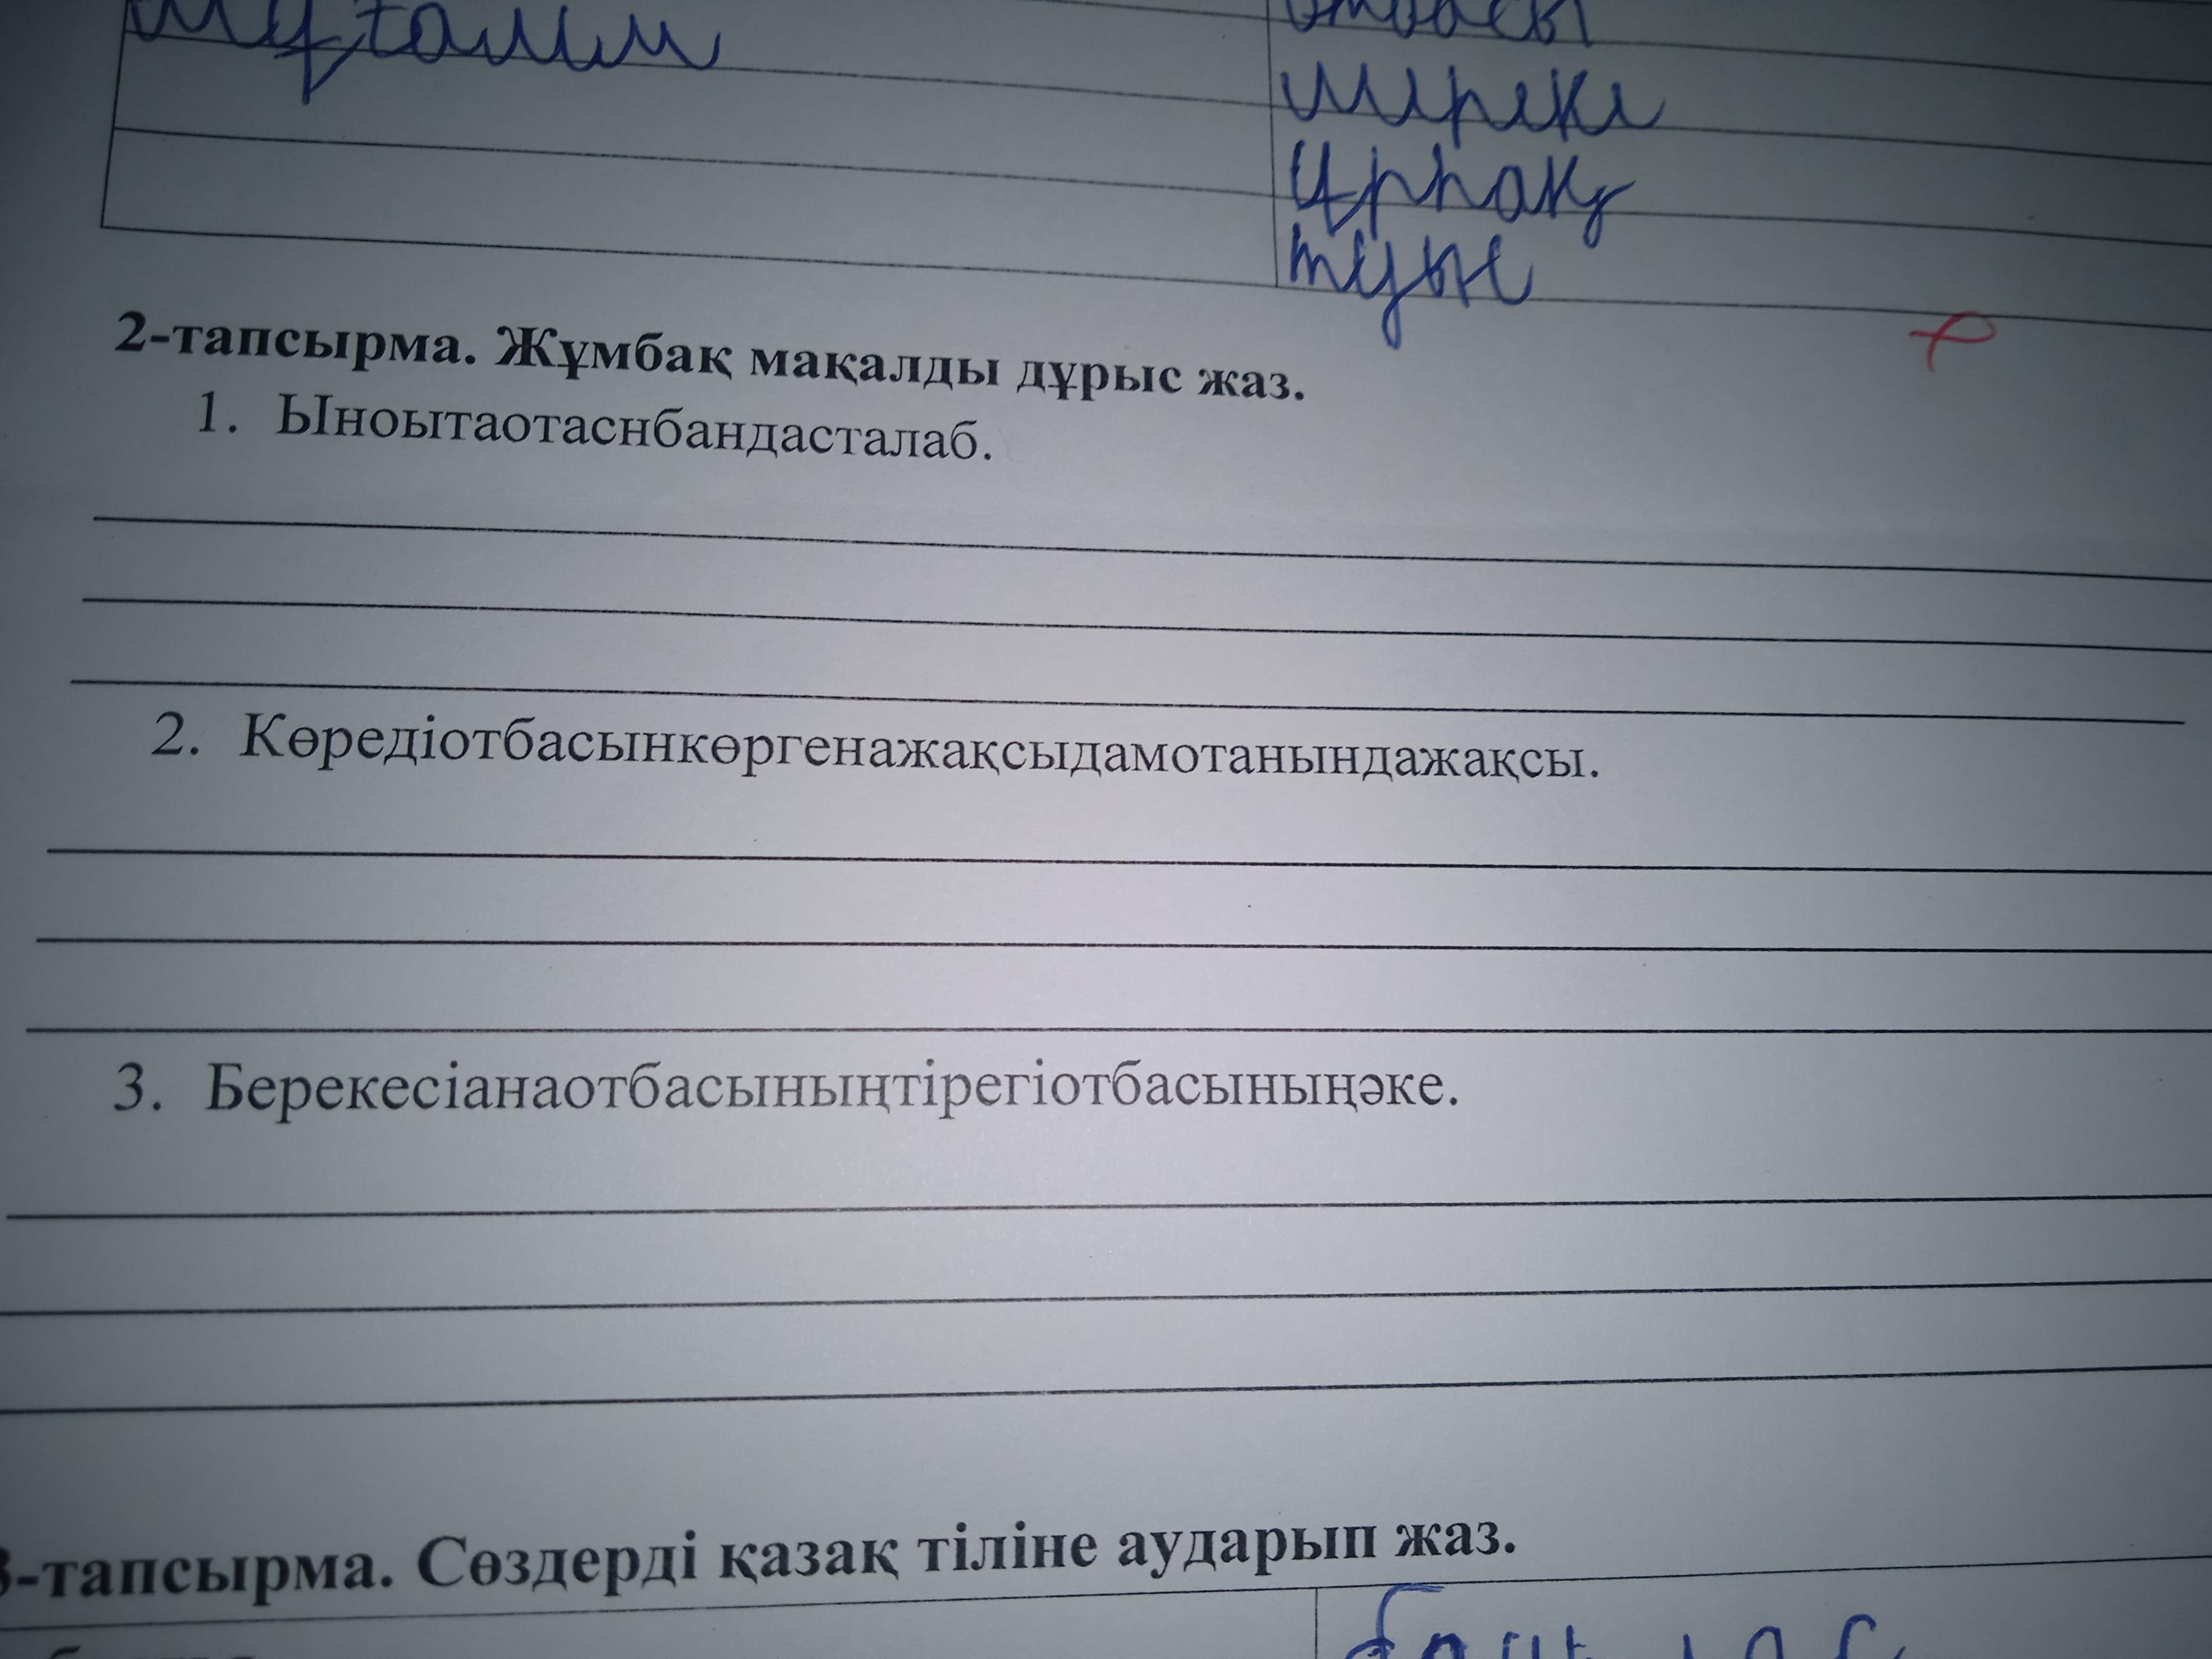 отбасы
шұғыл
ширек
ұрпақ
туыс
2-тапсырма. Жұмбақ мақалды дұрыс жаз.
1. Ыноытаотаснбандасталаб.
2. Көредіотбасынкөргенажақсыдамотанындажақсы.
3. Берекесіанаотбасыныңтірегіотбасыныңәке.
3-тапсырма. Сөздерді қазақ тіліне аударып жаз.